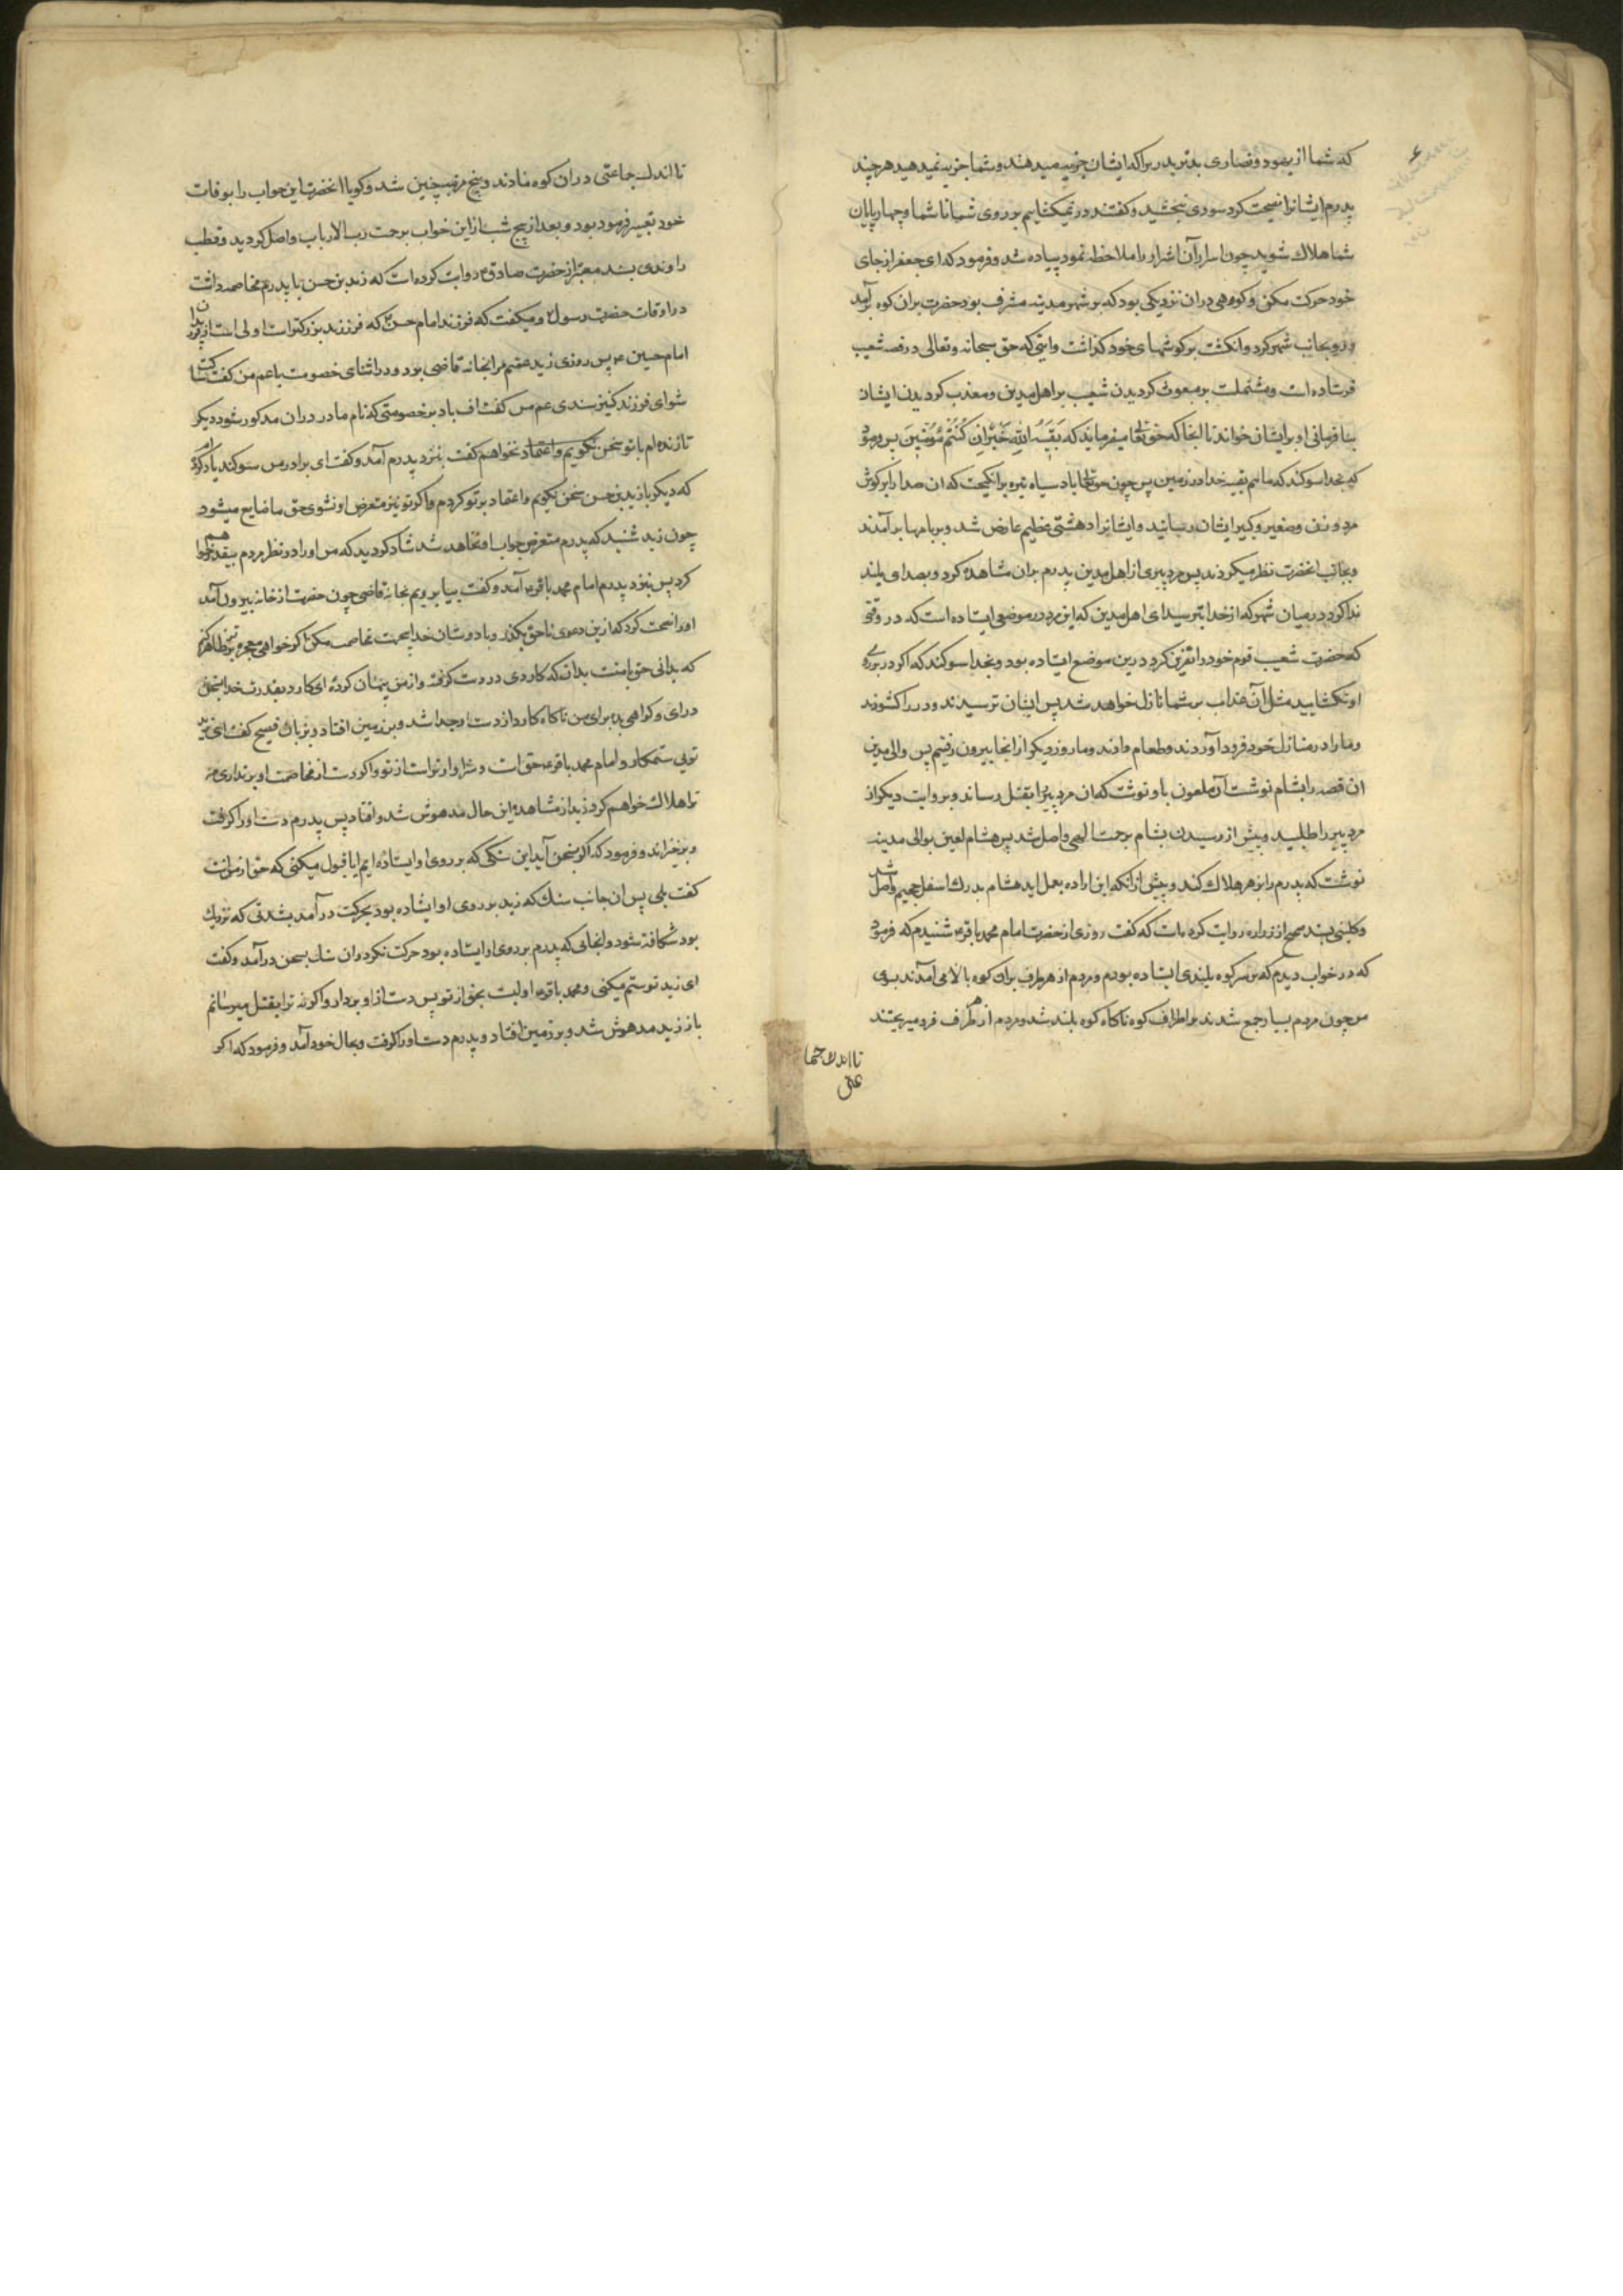 که شما از یهود و نصاری بدترید زیرا که ایشان جزیه میدهند و شما جزیه نمیدهید هر چند
پدرم ایشانرا نصیحت کرد سودی نبخشید و گفتند در نمیکشاییم بر روی شما تا شما و چهارپایان
شما هلاک شوید چون اسرار آن اشرار را ملاحظه نمود پیاده شد و فرمود که ای جعفر از جای
خود حرکت مکن و کوهی در ان نزدیکی بود که بر شهر مدینه مشرف بود حضرت بران کوه برآمد
و رو بجانب شهر کرد و انکشت بر کوشهای خود کذاشت و ایتی که حق سبحانه و تعالی در قصه شعیب
فرستاده است و مشتملست بر مبعوث کردیدن شعیب بر اهل مدین و معذب کردیدن ایشان
بنافرمانی او بر ایشان خواند تا انجا که حق تعا میفرماید که بَقیَّةُ اللهِ خَیْرٌ اِن کُنْتُم مُؤمنینَ پس فرمود
که بخدا سوکند که ماییم بقیه خدا در زمین پس چون حق تعا باد سیاه تیره برانکیخت که ان صدا را بر کوش
مرد و زن و صغیر و کبیر ایشان رسانید و ایشانرا دهشتی عظیم عارض شد و بر بامها برآمدند
و بجانب انحضرت نظر میکردند پس مرد پیری از اهل مدین پدرم بران مشاهده کرد و بصدای بلند
ندا کرد در میان شهر که از خدا بترسید ای اهل مدین که این مرد در موضعی ایستاده است که در وقتی
که حضرت شعیب قوم خود را نفرین کرد درین موضع ایستاده بود و بخدا سوکند که اکر در بروی
او نکشایید مثل آن عذاب بر شما نازل خواهد شد پس ایشان ترسیدند و در را کشودند
و ما را در منازل خود فرود آوردند و طعام دادند و ما روز دیکر از انجا بیرون رفتیم پس والی مدین
ان قصه را بشام نوشت آن ملعون باو نوشت که ان مرد پیر را بقتل رساند و بروایت دیکر از
مرد پیر را طلبید و پیش از رسیدن بشام برحمت الهی واصل شد پس هشام لعین بوالی مدینه
نوشت که پدرم را بزهر هلاک کند و پیش از انکه این اراده بعمل اید هشام بدرک اسفل جحیم واصل شد
و کلینی بسند صحیح از زراره روایت کرده است که گفت روزی از حضرت امام محمد باقر ع شنیدم که فرمود
که در خواب دیدم که بر سر کوه بلندی ایستاده بودم و مردم از هر طرف بران کوه بالا می آمدند بسوی
من چون مردم بسیار جمع شدند بر اطراف کوه ناکاه کوه بلند شد و مردم از هر طرف فرو میریختند
تا اندک جما
عتی
تا اندک جماعتی در ان کوه ماندند و پنج مرتبه چنین شد و کویا انحضرت این خواب را بوفات
خود تعبیر فرموده بود و بعد از پنج شب از این خواب برحمت رب الارباب واصل کردید و قطب
راوندی بسند معتبر از حضرت صادق ع روایت کرده است که زید بن حسن با پدرم مخاصمه داشت
در اوقات حضرت رسول و میکفت که فرزند امام حسن ع که فرزند بزرکتر است اولی است از فرزندان
امام حسین ع پس روزی زید عمم را بخانه قاضی بود و در اثنای خصومت با عم من کفت ساکت
شو ای فرزند کنیز سندی عم من کفت اف باد بر خصومتی که نام مادر دران مذکور شود دیکر
تا زنده ام با تو سخن نکویم و اعتماد نخواهم کفت نزد پدرم آمد و کفت ای برادر من سوکند یاد کرده ام
که دیکر با زید بن حسن سخن نکویم و اعتماد بر تو کردم و اکر تو نیز متعرض او نشوی حق ما ضایع میشود
چون زید شنید که پدرم متعرض جواب او خواهد شد شاد کردید که من او را در نظر مردم بیقدر خواهم
کرد پس نیزد پدرم امام محمد باقر ع آمد و کفت بیا برویم بخانه قاضی چون حضرت از خانه بیرون آمد
او را نصیحت کرد که ازین دعوی ناحق بکذر و با دوستان خدا بجهت مخاصمت مکن اکر خواهی معجزه بر تو ظاهر کنم
که بدانی حق بامنست بدان که کاردی در دست کرفته و از من پنهان کردهٔ ای کارد بقدرت خدا بسخن
درای و کواهی بده برای من ناکاه کارد از دست او جدا شد و بر زمین افتاد و بزبان فصیح کفت ای زید
تویی ستمکار و امام محمد باقر ع حق است و سزاوارتر است از تو و اکر دست از مخاصمت او برنداری من
ترا هلاک خواهم کرد زید از مشاهده این حال مدهوش شد و افتاد پس پدرم دست او را کرفت
و برخیزاند و فرمود که اکر بسخن آید این سنکی که بر روی او ایستاده ایم ایا قبول میکنی که حق از من است
کفت بلی پس ان جانب سنک که زید بر روی او ایستاده بود بحرکت درآمد بشدتی که نزدیک
بود شکافته شود و انجایی که پدرم بر روی او ایستاده بود حرکت نکرد و ان سنک بسخن درآمد و کفت
ای زید تو ستم میکنی و محمد باقر ع اولیست بحق از تو پس دست از او بردار و اکر نه ترا بقتل میرسانم
باز زید مدهوش شد و بر زمین افتاد و پدرم دست او را کرفت و بحال خود آمد و فرمود که اکر